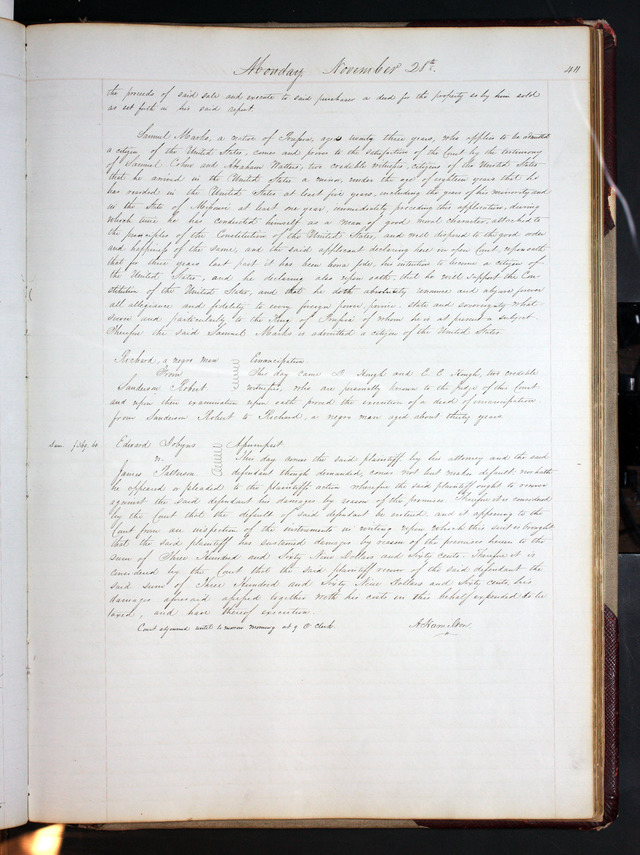 Monday November 28th. 411
the proceeds of said sale and execute to said purchaser a deed for the property so by him sold
as set forth in his said report
Samuel Marks, a native of Prussia, aged twenty three years, who applies to be admitted
a citizen of the United States, comes and proves to the satisfaction of the Court by the testimony
of Samuel Cohn and Abraham Watters, two credible witnesses, citizens of the United States
that he arrived in the United States a minor, under the age of eighteen years that he
has resided in the United States at least five years, including the years of his minority and
in the State of Missouri at least one year, immediately preceding this application, during
which time he has conducted himself as a man of good moral character, attached to
the principles of the Constitution of the United States, and well disposed to the good order
and happiness of the same, and the said applicant declaring here in open Court, upon oath
that for three years last past it has been bona fide, his intention to become a citizen of
the United States, and he declaring also upon oath, that he will support the Con-
stitution of the United States, and that he doth absolutely renounce and abjure forever
all allegiance and fidelity to every foreign power, prince, state and sovereignty what-
soever and particularly to the King of Prussia of whom he is at present a subject
Therefore the said Samuel Marks is admitted a citizen of the United States
Richard, a negro man Emancipation
From This day came A. Hough and E. C. Hough, two credible
Sanderson Robert witnesses, who are personally known to the judge of this Court
and upon their examination upon oath proved the execution of a deed of emancipation
from Sanderson Robert to Richard, a negro man aged about thirty years
Dam. $369. 60 Edward Dobyns Assumpsit
vs. This day comes the said plaintiff by his attorney and the said
James Patterson defendant though demanded, comes not but makes default nor hath
he appeared or pleaded to the plaintiffs action wherefore the said plaintiff ought to recover
against the said defendant his damages by reason of the premises Therefore it is considered
by the Court that the default of said defendant be entered, and it appearing to the
Court from an inspection of the instruments in writing upon which this suit is brought
that the said plaintiff has sustained damages by reason of the premises herein to the
sum of Three Hundred and Sixty Nine Dollars and Sixty cents. Therefore it is
considered by the Court that the said plaintiff recover of the said defendant the
said sum of Three Hundred and Sixty Nine Dollars and Sixty cents, his
damages aforesaid assessed together with his costs in this behalf expended to be
taxed, and have thereof execution.
Court adjourned until to morrow morning at 9 O'Clock A Hamilton